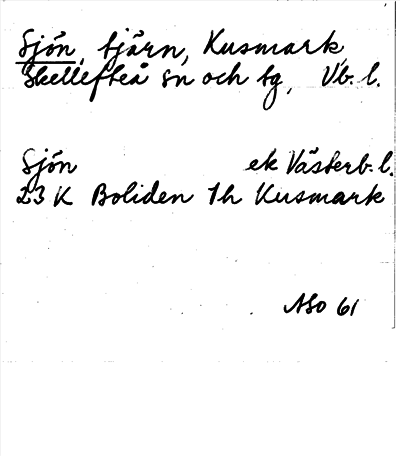 Sjön, tjärn, Kusmark,
Skellefteå sn och tg, Vb. l.
Sjön ek Västerb. l.
23 K Boliden 1h Kusmark
ASO 61